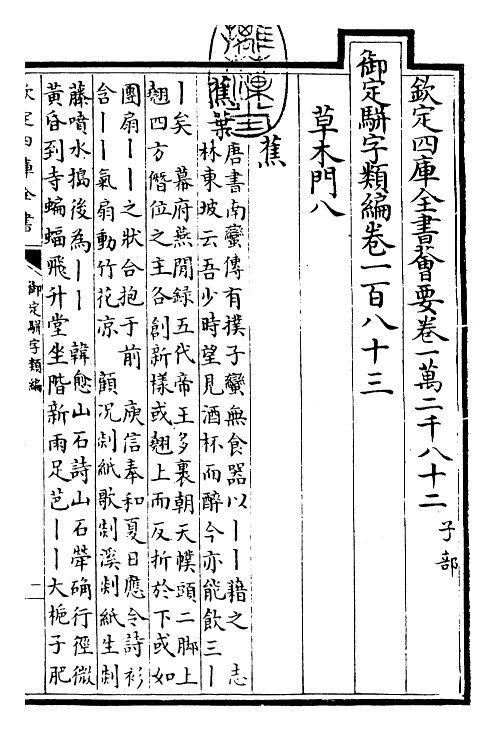 欽定四庫全書薈要卷一萬二千八十二 子部
御定駢字類編卷一百八十三
草木門八
蕉
蕉葉 唐書南蠻傳有撲子蠻無食器以丨丨藉之 志
林東坡云吾少時望見酒杯而醉今亦能飲三丨
丨矣 幕府燕閒録五代帝王多裹朝天幞頭二脚上
翹四方僭位之主各創新樣或翹上而反折於下或如
團扇丨丨之狀合抱于前 庾信奉和夏日應令詩衫
含丨丨氣扇動竹花凉 顧況剡紙歌剡溪剡紙生剡
藤噴水搗後為丨丨 韓愈山石詩山石犖确行徑微
黃昏到寺蝙蝠飛升堂坐階新雨足芭丨丨大梔子肥
欽定四庫全書
御定駢字類編